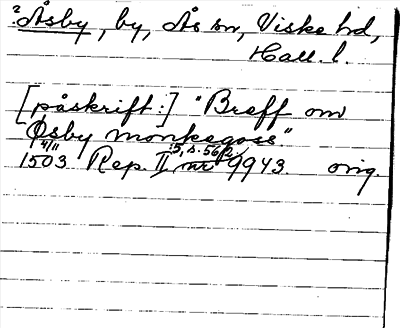 ? Åsby, by, Ås sn, Viske hd,
Hall. l.
[påskrift:] "Breff om
Øsby monkegoss"
4/11 :5, s. 562
1503 Rep. II nr 9943. orig.